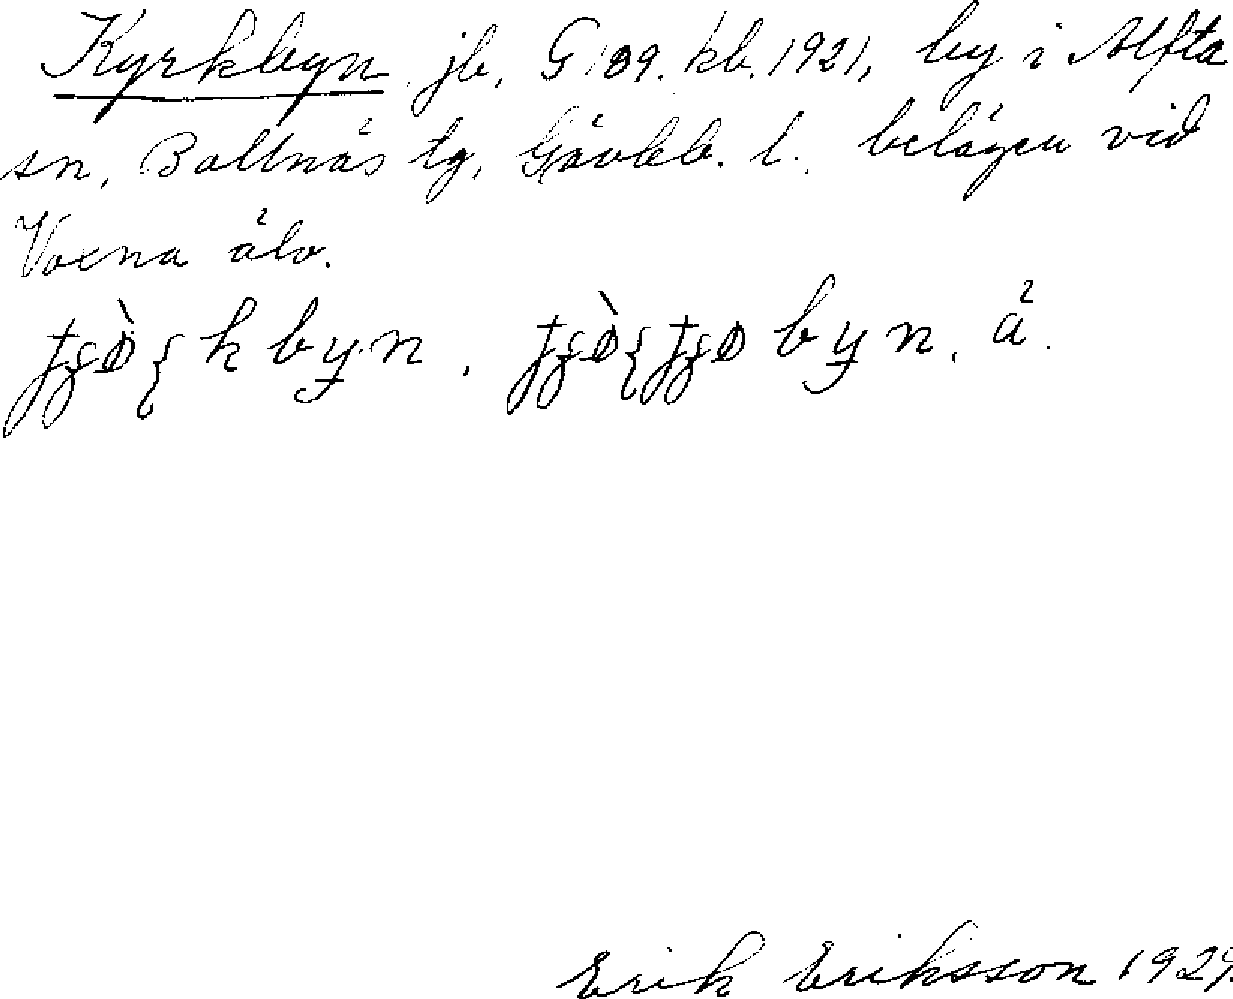 Kyrkbyn jb, G 109. kb. 1921, by i Alfta
sn, Bollnäs tg, Gävleb. l. belägen vid
Voxna älv.
byn. byn. å.
Erik Eriksson 1929.